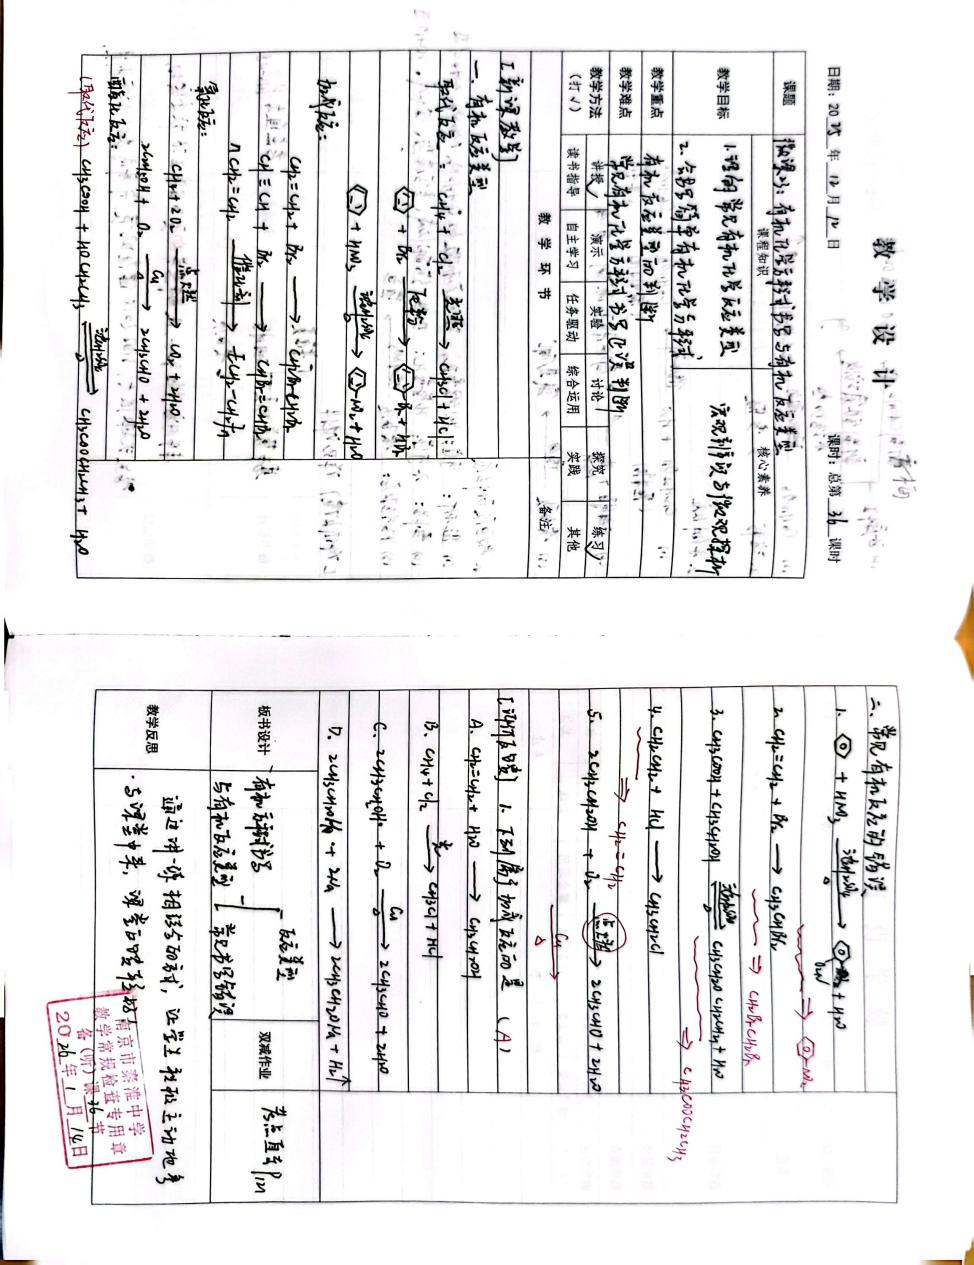 教 学 设 计
日期：2025 年 12 月 12 日 课时：总第 36 课时
课题 微课23：有机化学方程式书写与有机反应类型
课程知识 核心素养
教学目标
1.认识常见有机化学反应类型
2.会书写简单有机化学方程式
宏观辨识与微观探析
教学重点 有机反应类型的判断
教学难点 常见有机化学方程式书写正误判断
教学方法（打√） 讲授√ 演示 实验 讨论 探究 练习√
读书指导 自主学习 任务驱动 综合运用 实践 其他
教 学 环 节 备注
[新课教学]
一. 有机反应类型
取代反应： CH₄ + Cl₂ —光照→ CH₃Cl + HCl
+ Br₂ —Fe粉→ -Br + HBr
+ HNO₃ —浓H₂SO₄ △→ -NO₂ + H₂O
加成反应：
CH₂=CH₂ + Br₂ → CH₂BrCH₂Br
CH≡CH + Br₂ → CHBr=CHBr
nCH₂=CH₂ —催化剂→ ⁅CH₂-CH₂⁆n
氧化反应：
CH₄ + 2O₂ —点燃→ CO₂ + 2H₂O
2CH₃CH₂OH + O₂ —Cu △→ 2CH₃CHO + 2H₂O
酯化反应：
(取代反应) CH₃COOH + HOCH₂CH₃ ⇌ 浓H₂SO₄ △ CH₃COOCH₂CH₃ + H₂O
二、常见有机反应的错误
1. + HNO₃ —浓H₂SO₄ △→ + H₂O
O₂N ⇒ -NO₂
2. CH₂=CH₂ + Br₂ → CH₃CHBr₂
⇒ CH₂BrCH₂Br
3. CH₃COOH + CH₃CH₂OH ⇌ 浓H₂SO₄ △ CH₃CH₂OCH₂CH₃ + H₂O
⇒ CH₃COOCH₂CH₃
4. CH₂CH₂ + HCl → CH₃CH₂Cl
⇒ CH₂=CH₂
5. 2CH₃CH₂OH + O₂ —点燃→ 2CH₃CHO + 2H₂O
Cu △ →
[课后自测] 1. 下列属于加成反应的是 (A)
A. CH₂=CH₂ + H₂O → CH₃CH₂OH
B. CH₄ + Cl₂ —光→ CH₃Cl + HCl
C. 2CH₃CH₂OH + O₂ —Cu △→ 2CH₃CHO + 2H₂O
D. 2CH₃CH₂OH + 2Na → 2CH₃CH₂ONa + H₂↑
板书设计
有机方程式书写与有机反应类型
反应类型
常见书写错误
双减作业 考点直击P121
教学反思
通过讲-练相结合的方式，让学生积极主动地参
与课堂中来，课堂
南京市秦淮中学
教学常规检查专用章
备（听）课 36 节
2026 年 1 月 14 日